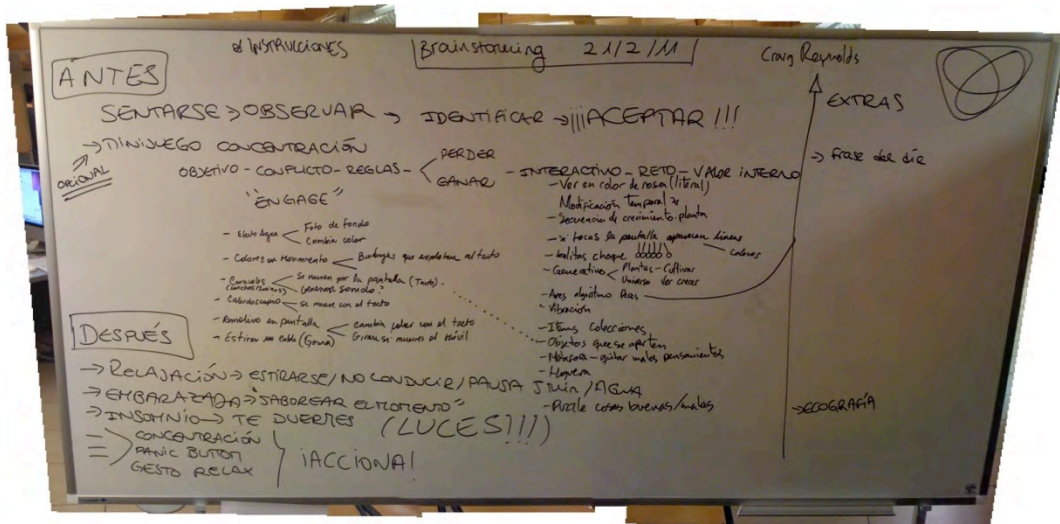 INSTRUCCIONES
Brainstorming 21/2/11
Craig Reynolds
ANTES
SENTARSE > OBSERVAR → IDENTIFICAR → ¡¡¡ACEPTAR!!!
→ MINIJUEGO CONCENTRACIÓN
OPCIONAL
OBJETIVO - CONFLICTO - REGLAS - PERDER
GANAR
- INTERACTIVO - RETO - VALOR INTERNO
"ENGAGE"
- Efecto Agua Foto de fondo
Cambia color
- Colores en Movimiento Burbujas que explotan al tacto
- Caracolas Se mueven por la pantalla (Tacto).
Generar sonido.
- Caleidoscopio - se mueve con el tacto
- Remolino en pantalla Cambia color con el tacto
Gira si mueves el móvil
- Estirar un cable (Goma)
- Ver en color de rosa (literal)
Modificación temporal
- Secuencia de crecimiento planta
- si tocas la pantalla aparecen líneas
colores
- bolitas choque
- Generativo Plantas - Cultivar
Universo ver crecer
- Aves algoritmo
- Vibración
- Items colecciones
- Objetos que se aparten
- quitar malos pensamientos
- Hoguera
- Puzzle cosas buenas/malas
EXTRAS
→ Frase del día
→ ECOGRAFÍA
DESPUÉS
→ RELAJACIÓN → ESTIRARSE / NO CONDUCIR / PAUSA 5 MIN / AGUA
→ EMBARAZADA → "SABOREAR EL MOMENTO"
→ INSOMNIO → TE DUERMES (LUCES!!!)
CONCENTRACIÓN
PANIC BUTTON
GESTO RELAX
¡ACCIONA!